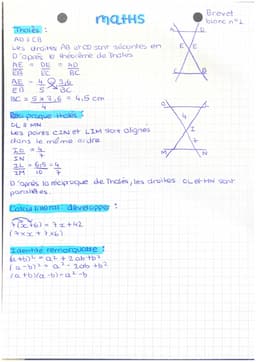 maths
Brevet
blanc n°1
Thalès :
AD // CB
Les droites AB et CD sont sécantes en
D'après le théorème de Thalès
AE = DE = AD
EB EC BC
AE = 4 3,6
EB 5 BC
BC = 5 x 3,6 = 4,5 cm
4
Réciproque Thalès :
OL // MN
Les points CIN et LIM sont alignés
dans le même ordre
IO = 4
IN 7
IL = 4
IM 10 7
D'après la réciproque de Thalès, les droites OL et MN sont
parallèles.
Calcul littéral : développer :
7(x+6) = 7x+42
(7xx + 7x6)
Identité remarquable :
(a+b)² = a² + 2ab + b²
(a-b)² = a² - 2ab + b²
(a+b)(a-b) = a² - b
A
D
E
L
B
O
4
I
7
M
N